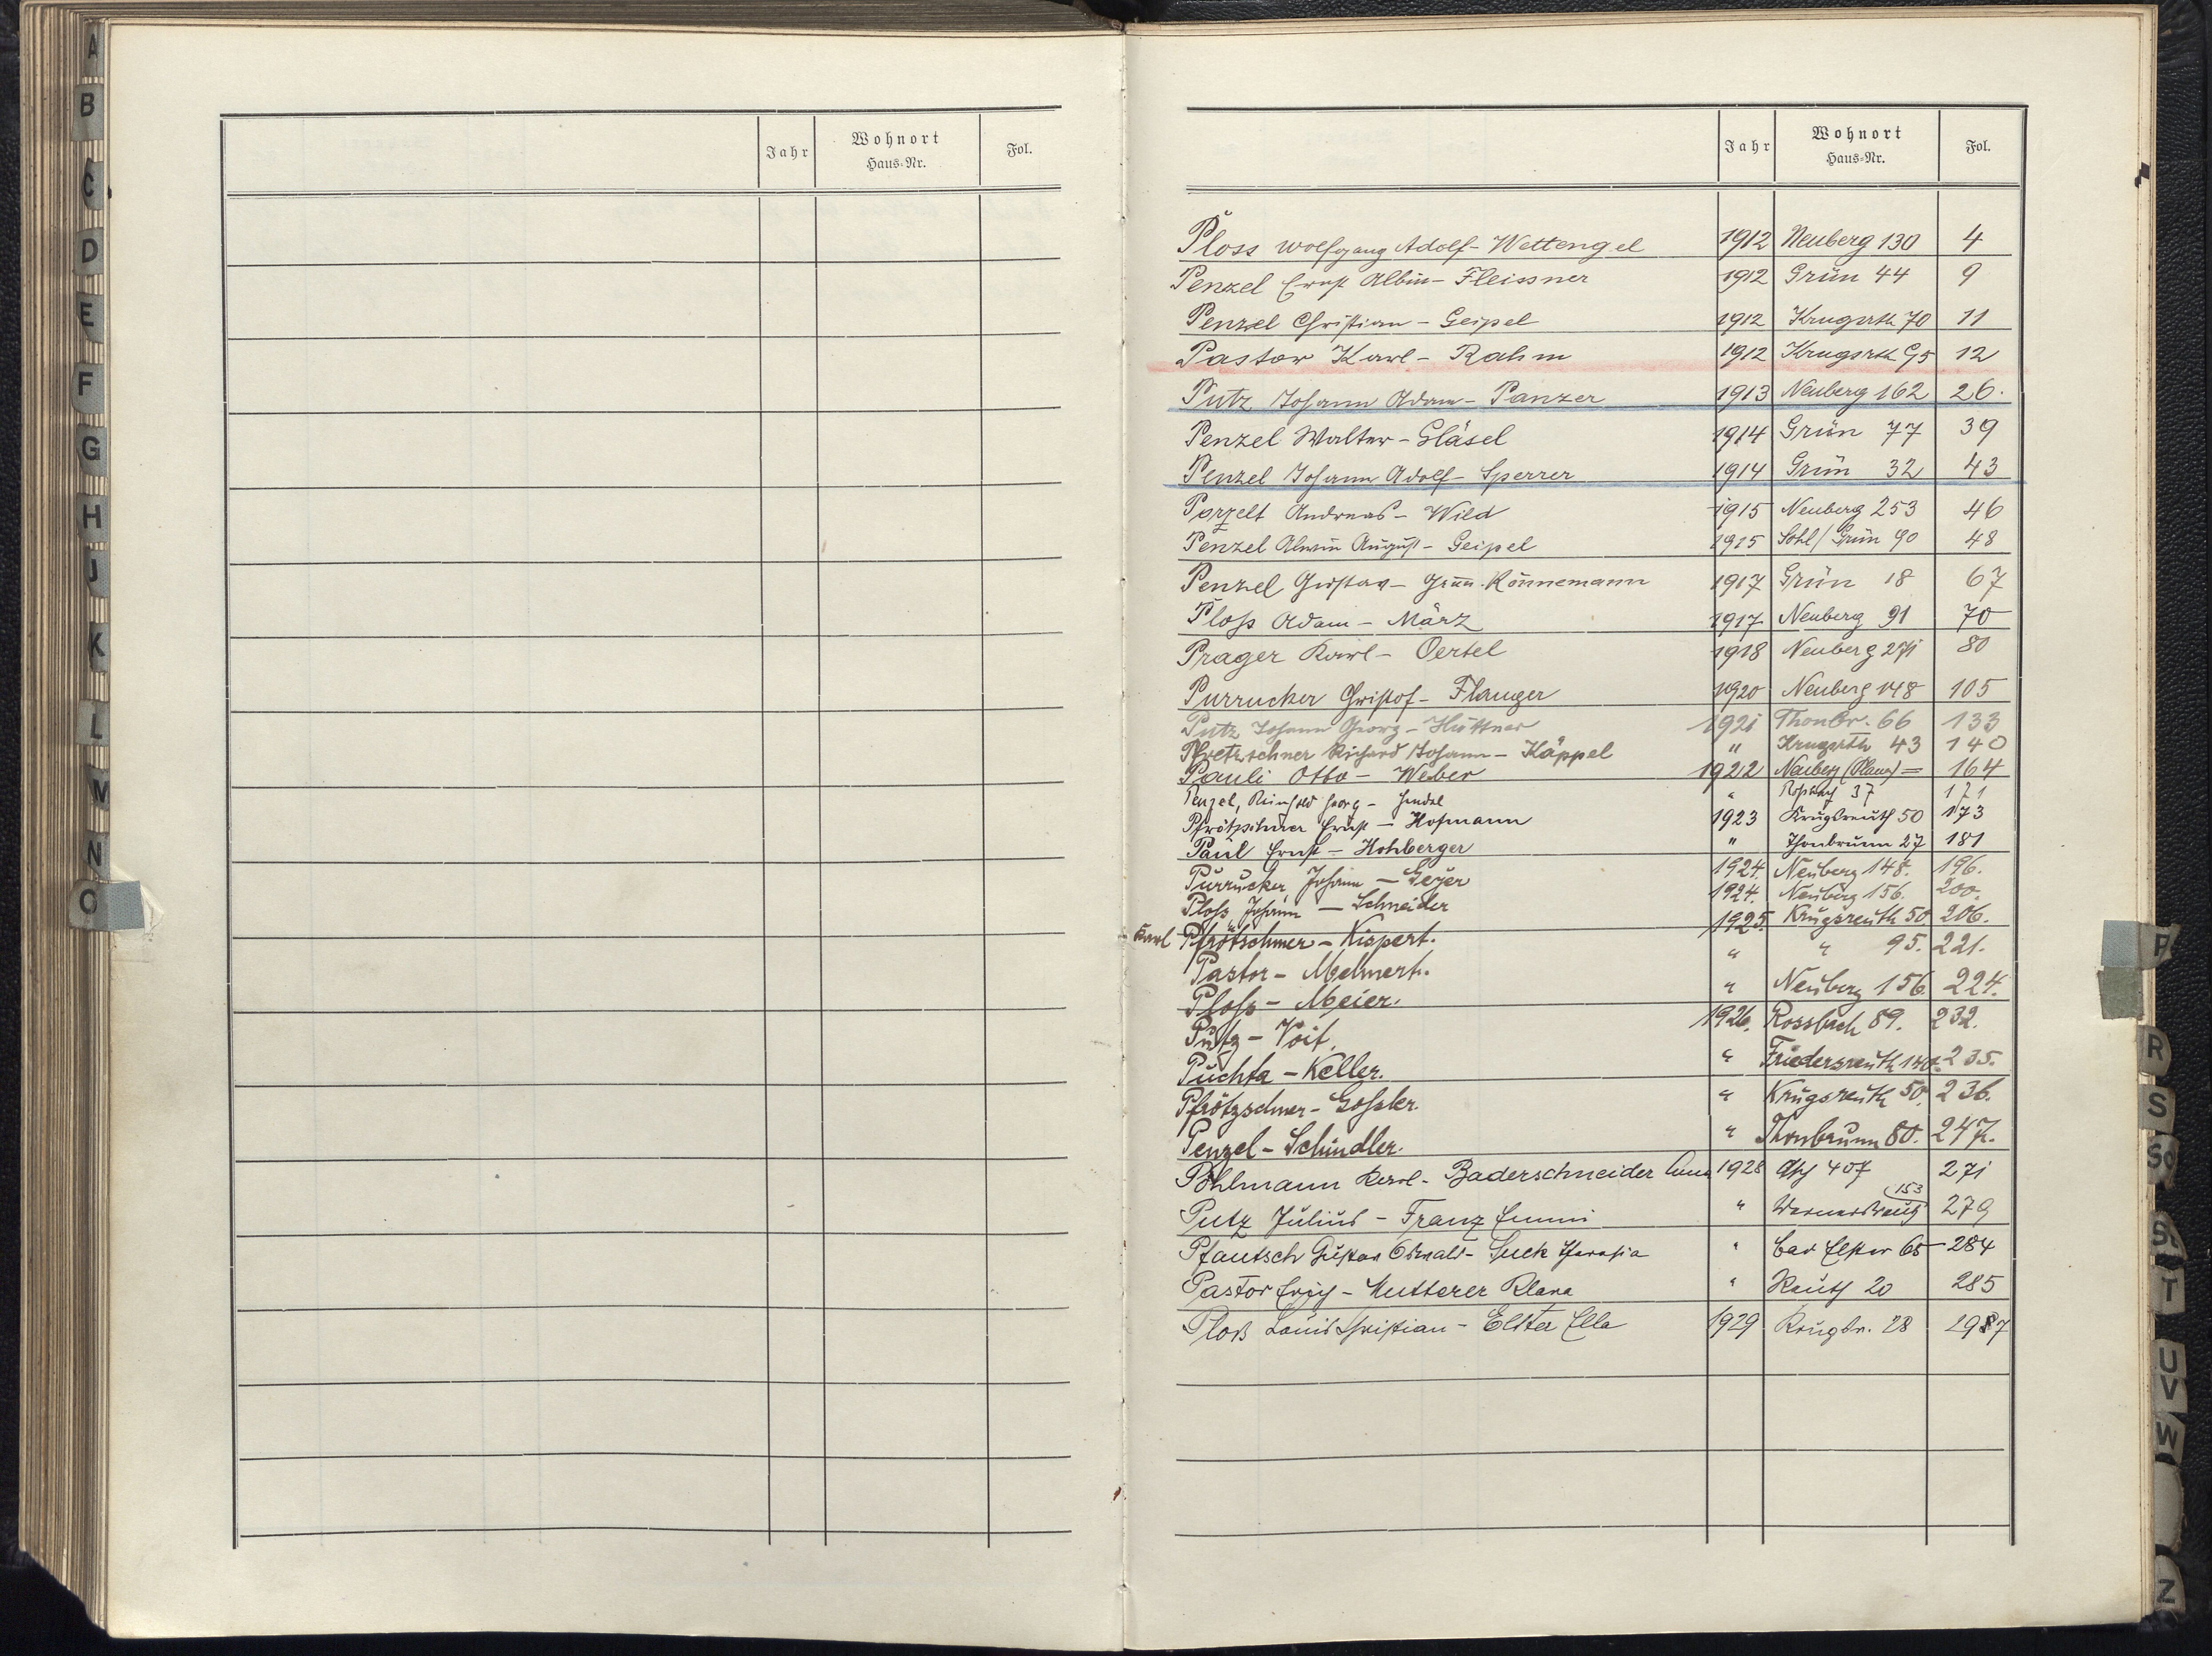 A
B
C
D
E
F
G
H
J
K
L
M
N
O
Jahr Wohnort Haus-Nr. Fol.
Jahr Wohnort Haus-Nr. Fol.
Ploss Wolfgang Adolf - Wettengel 1912 Neuberg 130 4
Penzel Ernst Albin - Fleissner 1912 Grün 44 9
Penzel Christian - Geipel 1912 Krugsrth 70 11
Pastor Karl - Rahm 1912 Krugsrth 95 12
Putz Johann Adam - Panzer 1913 Neuberg 162 26.
Penzel Walter - Gläsel 1914 Grün 77 39
Penzel Johann Adolf - Sperrer 1914 Grün 32 43
Porzelt Andreas - Wild 1915 Neuberg 253 46
Penzel Alwin August - Geipel 1915 Sohl/Grün 90 48
Penzel Gustav - Könnemann 1917 Grün 18 67
Ploß Adam - März 1917 Neuberg 91 70
Prager Karl - Oertel 1918 Neuberg 271 80
Purrucker Christof - Flauger 1920 Neuberg 148 105
Putz Johann Georg - Hüttner 1921 Thonbr. 66 133
Pfretzschner Richard Johann - Käppel " Krugsrth 43 140
Pauli Otto - Weber 1922 Neuberg (Plauen) = 164
Penzel, Reinhold Georg - Hendel " Roßbach 37 171
Pfrötzschner Ernst - Hofmann 1923 Krugsreuth 50 173
Paul Ernst - Hohberger " Thonbrunn 27 181
Purrucker Johann - Geyer 1924. Neuberg 148. 196.
Ploß Johann - Schneider 1924. Neuberg 156. 200.
Karl Pfrötschner - Kispert. 1925. Krugsreuth 50 206.
Pastor - Mehnert. " " 95. 221.
Ploß - Meier. " Neuberg 156 224.
Putz - Voit. 1926. Rossbach 89. 232.
Puchta - Keller. " Friedersreuth 140. 235.
Pfrötzschner - Goßler. " Krugsreuth 50. 236.
Penzel - Schindler. " Thonbrunn 80. 247.
Pöhlmann Karl - Baderschneider Anna 1928 Asch 407 271
Putz Julius - Franz Emmi " Wernersreuth 153 279
Pfautsch Gustav Oswald - Suck Theresia " Bad Elster 65 284
Pastor Erich - Mutterer Klara " Reuth 20 285
Ploß Louis Christian - Elster Ella 1929 Krugsr. 28 2987
P
R
S
Sch
St
T
U
V
W
Z